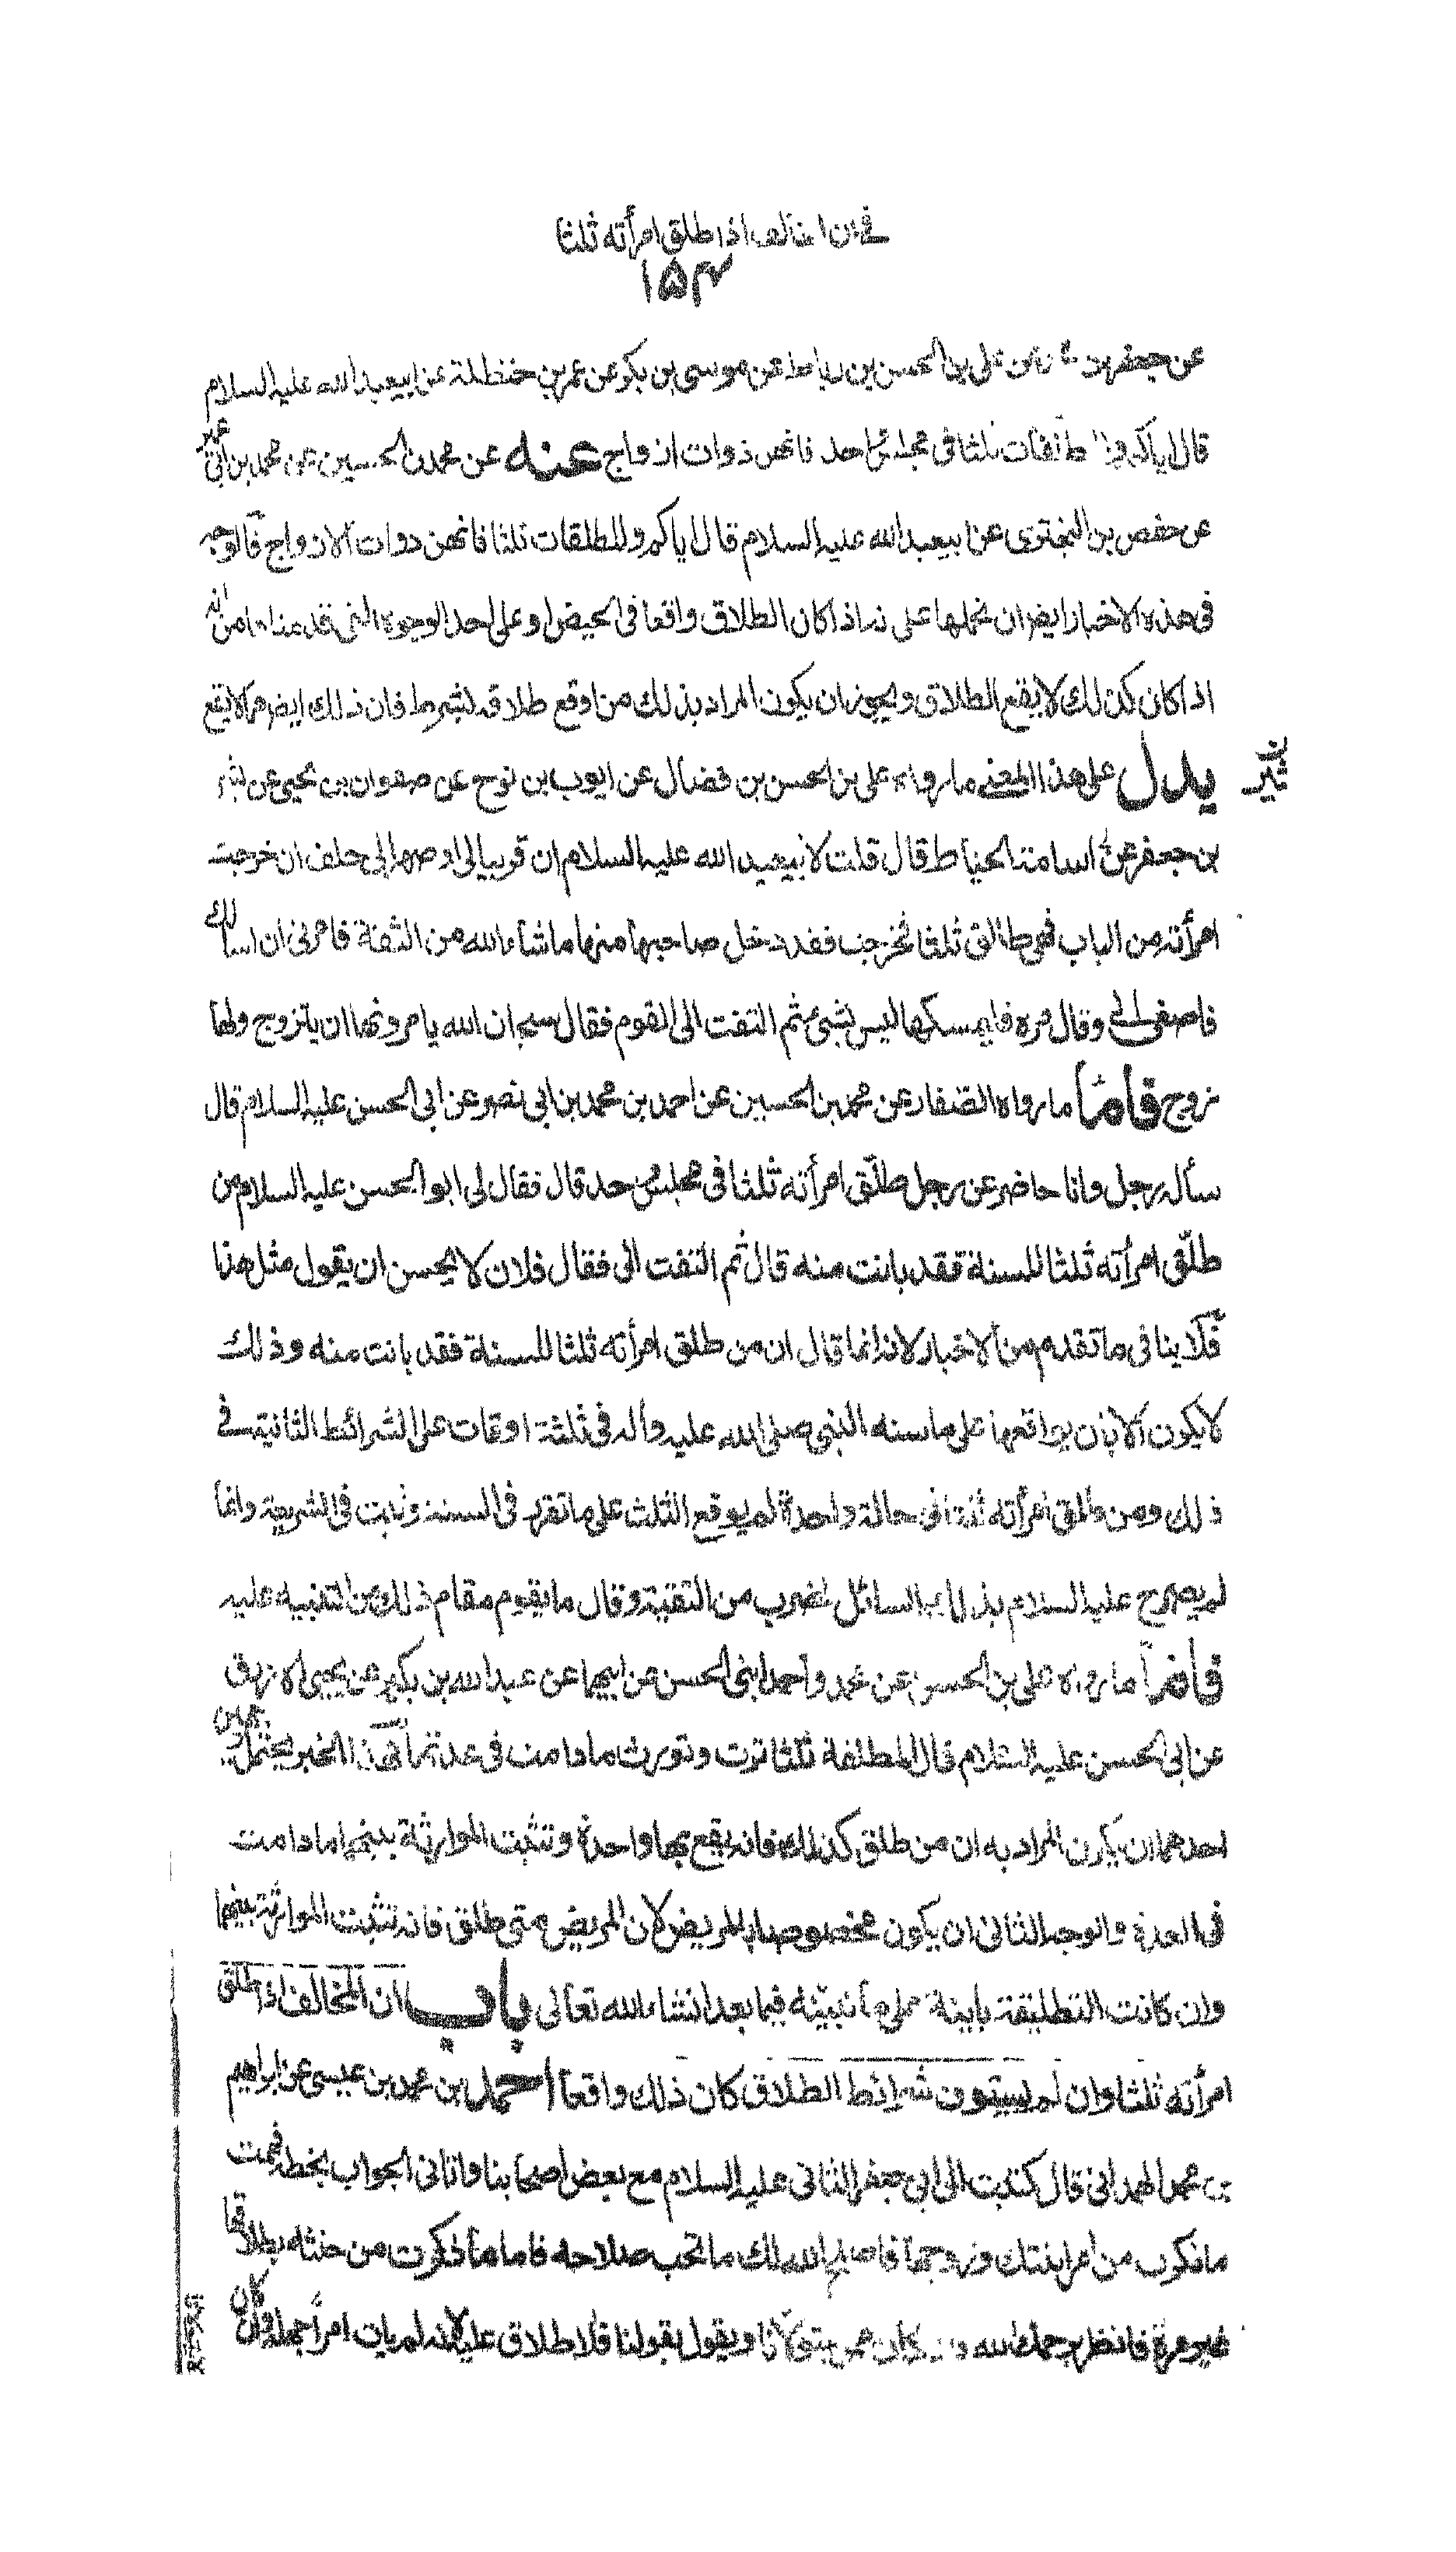 في ان المخالف اذا طلق امرأته ثلثا
١٥٤
عن جعفر بن عن علي بن الحسن بن رباط عن موسى بن بكر عن عمر بن حنظلة عن ابيعبد الله عليه السلام
قال اياكم و المطلقات ثلثا في مجلس احد فانهن ذوات ازواج عنه عن محمد بن الحسين عن محمد بن ابي عمير
عن حفص بن البختري عن ابيعبد الله عليه السلام قال اياكم والمطلقات ثلثا فانهن ذوات الازواج فالوجه
في هذه الاخبار ايضا ان نحملها على انه اذا كان الطلاق واقعا في الحيض او على احد الوجوه التي قدمناها من انه
اذا كان كذلك لا يقع الطلاق ويجوز ان يكون المراد بذلك من اوقع طلاقه بشرط فان ذلك ايضا مما لا يقع
يدل على هذا المعنى ما رواه علي بن الحسن بن فضال عن ايوب بن نوح عن صفوان بن يحيى عن
بن جعفر عن ابي اسامة الحياط قال قلت لابيعبد الله عليه السلام ان قريبا لي او صهرا لي حلف ان خرجت
امرأته من الباب فهي طالق ثلثا فخرجت فقد دخل صاحبها منها ما شاء الله من الشقة فامرني ان اسألك
فاصغى الي وقال مره فليمسكها ليس بشيء ثم التفت الى القوم فقال سبحان الله يامرونها ان يتزوج ولها
زوج فأما ما رواه الصفار عن محمد بن الحسين عن احمد بن محمد بن ابي نصر عن ابي الحسن عليه السلام قال
سأله رجل وانا حاضر عن رجل طلق امرأته ثلثا في مجلس حد قال فقال لي ابو الحسن عليه السلام من
طلق امرأته ثلثا للسنة فقد بانت منه قال ثم التفت الى فقال فلان لا يحسن ان يقول مثل هذا
فلا ينافى ما تقدم من الاخبار لانه انما قال ان من طلق امرأته ثلثا للسنة فقد بانت منه وذلك
لا يكون الا بان يواقعها على ما سنه النبي صلى الله عليه وآله في ثلثة اوقات على الشرائط الثانية في
ذلك ومن طلق امرأته ثلثا في حالة واحدة لم يوقع الثلث على ما تقرر في السنة وثبت في الشريعة وانما
لم يصرح عليه السلام بذلك السائل لضرب من التقية وقال ما يقوم مقام ذلك من التنبيه عليه
فأما ما رواه علي بن الحسن عن محمد واحمد ابنى الحسن عن ابيهما عن عبد الله بن بكير عن يحيى الازرق
عن ابي الحسن عليه السلام قال المطلقة ثلثا ترث وتورث ما دامت في عدتها فهذا الخبر يحتمل وجهين
احدهما ان يكون المراد به ان من طلق كذلك فانه يقع بها واحدة وتثبت الموارثة بينهما ما دامت
في العدة والوجه الثاني ان يكون مخصوصا بالمريض لان المريض متى طلق فانه تثبت الموارثة بينهما
وان كانت التطليقة باينة على ما نبينه فيما بعد انشاء الله تعالى باب ان المخالف اذا طلق
امرأته ثلثا وان لم يستوف شرائط الطلاق كان ذلك واقعا احمد بن محمد بن عيسى عن ابراهيم
بن محمد الهمداني قال كتبت الى ابي جعفر الثاني عليه السلام مع بعض اصحابنا واتاني الجواب بخطه فهمت
ما ذكرت من امر ابنتك وزوجها فاصلح الله لك ما تحب صلاحه فاما ما ذكرت من حنثه بطلاقها
غير مرة فانظر يرحمك الله فان كان ممن يتولانا ويقول بقولنا فلا طلاق عليه لانه لم يات امرا جهله وان كان